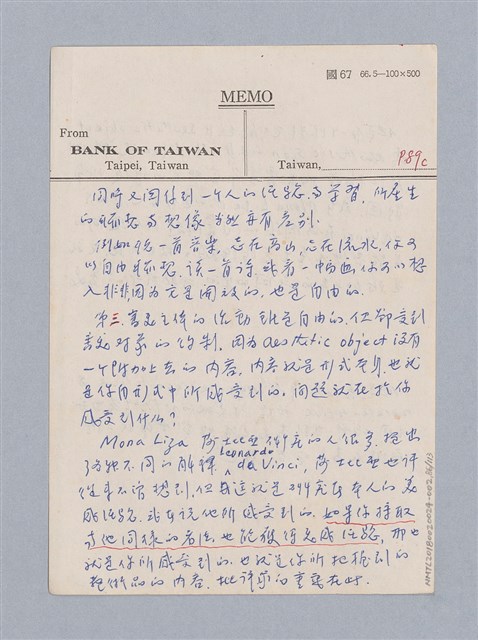 國67 66.5—100×500
MEMO
From
BANK OF TAIWAN
Taipei, Taiwan
Taiwan,
P89c
同時又關係到一個人的經驗與學習，所產生
的聯想與想像當然再有差別.
例如聽一首音樂，志在高山，志在流水，你可
以自由聯想，讀一首詩，或看一幅畫，你可以想
入非非因為它是開放的，也是自由的.
第三，審美主體的活動雖是自由的，但卻受到
審美對象的約制，因為aesthetic object沒有
一個附加上去的內容，內容就是形式本身，也就
是你由形式中所感受到的，問題就在於你
感受到什么？
Mona Liza 莎士比亞研究的人很多，提出
了各種不同的解釋，Leonardo da Vinci，莎士比亞也許
從來不曾想到，但其這就是研究者本人的美
感經驗，或者說他所感受到的，如果你採取
與他同樣的看法，也能獲得美感經驗，那也
就是你所感受到的，也就是你所把握到的
藝術品的內容，批評家的重要在此.
NMTL20180020024-002